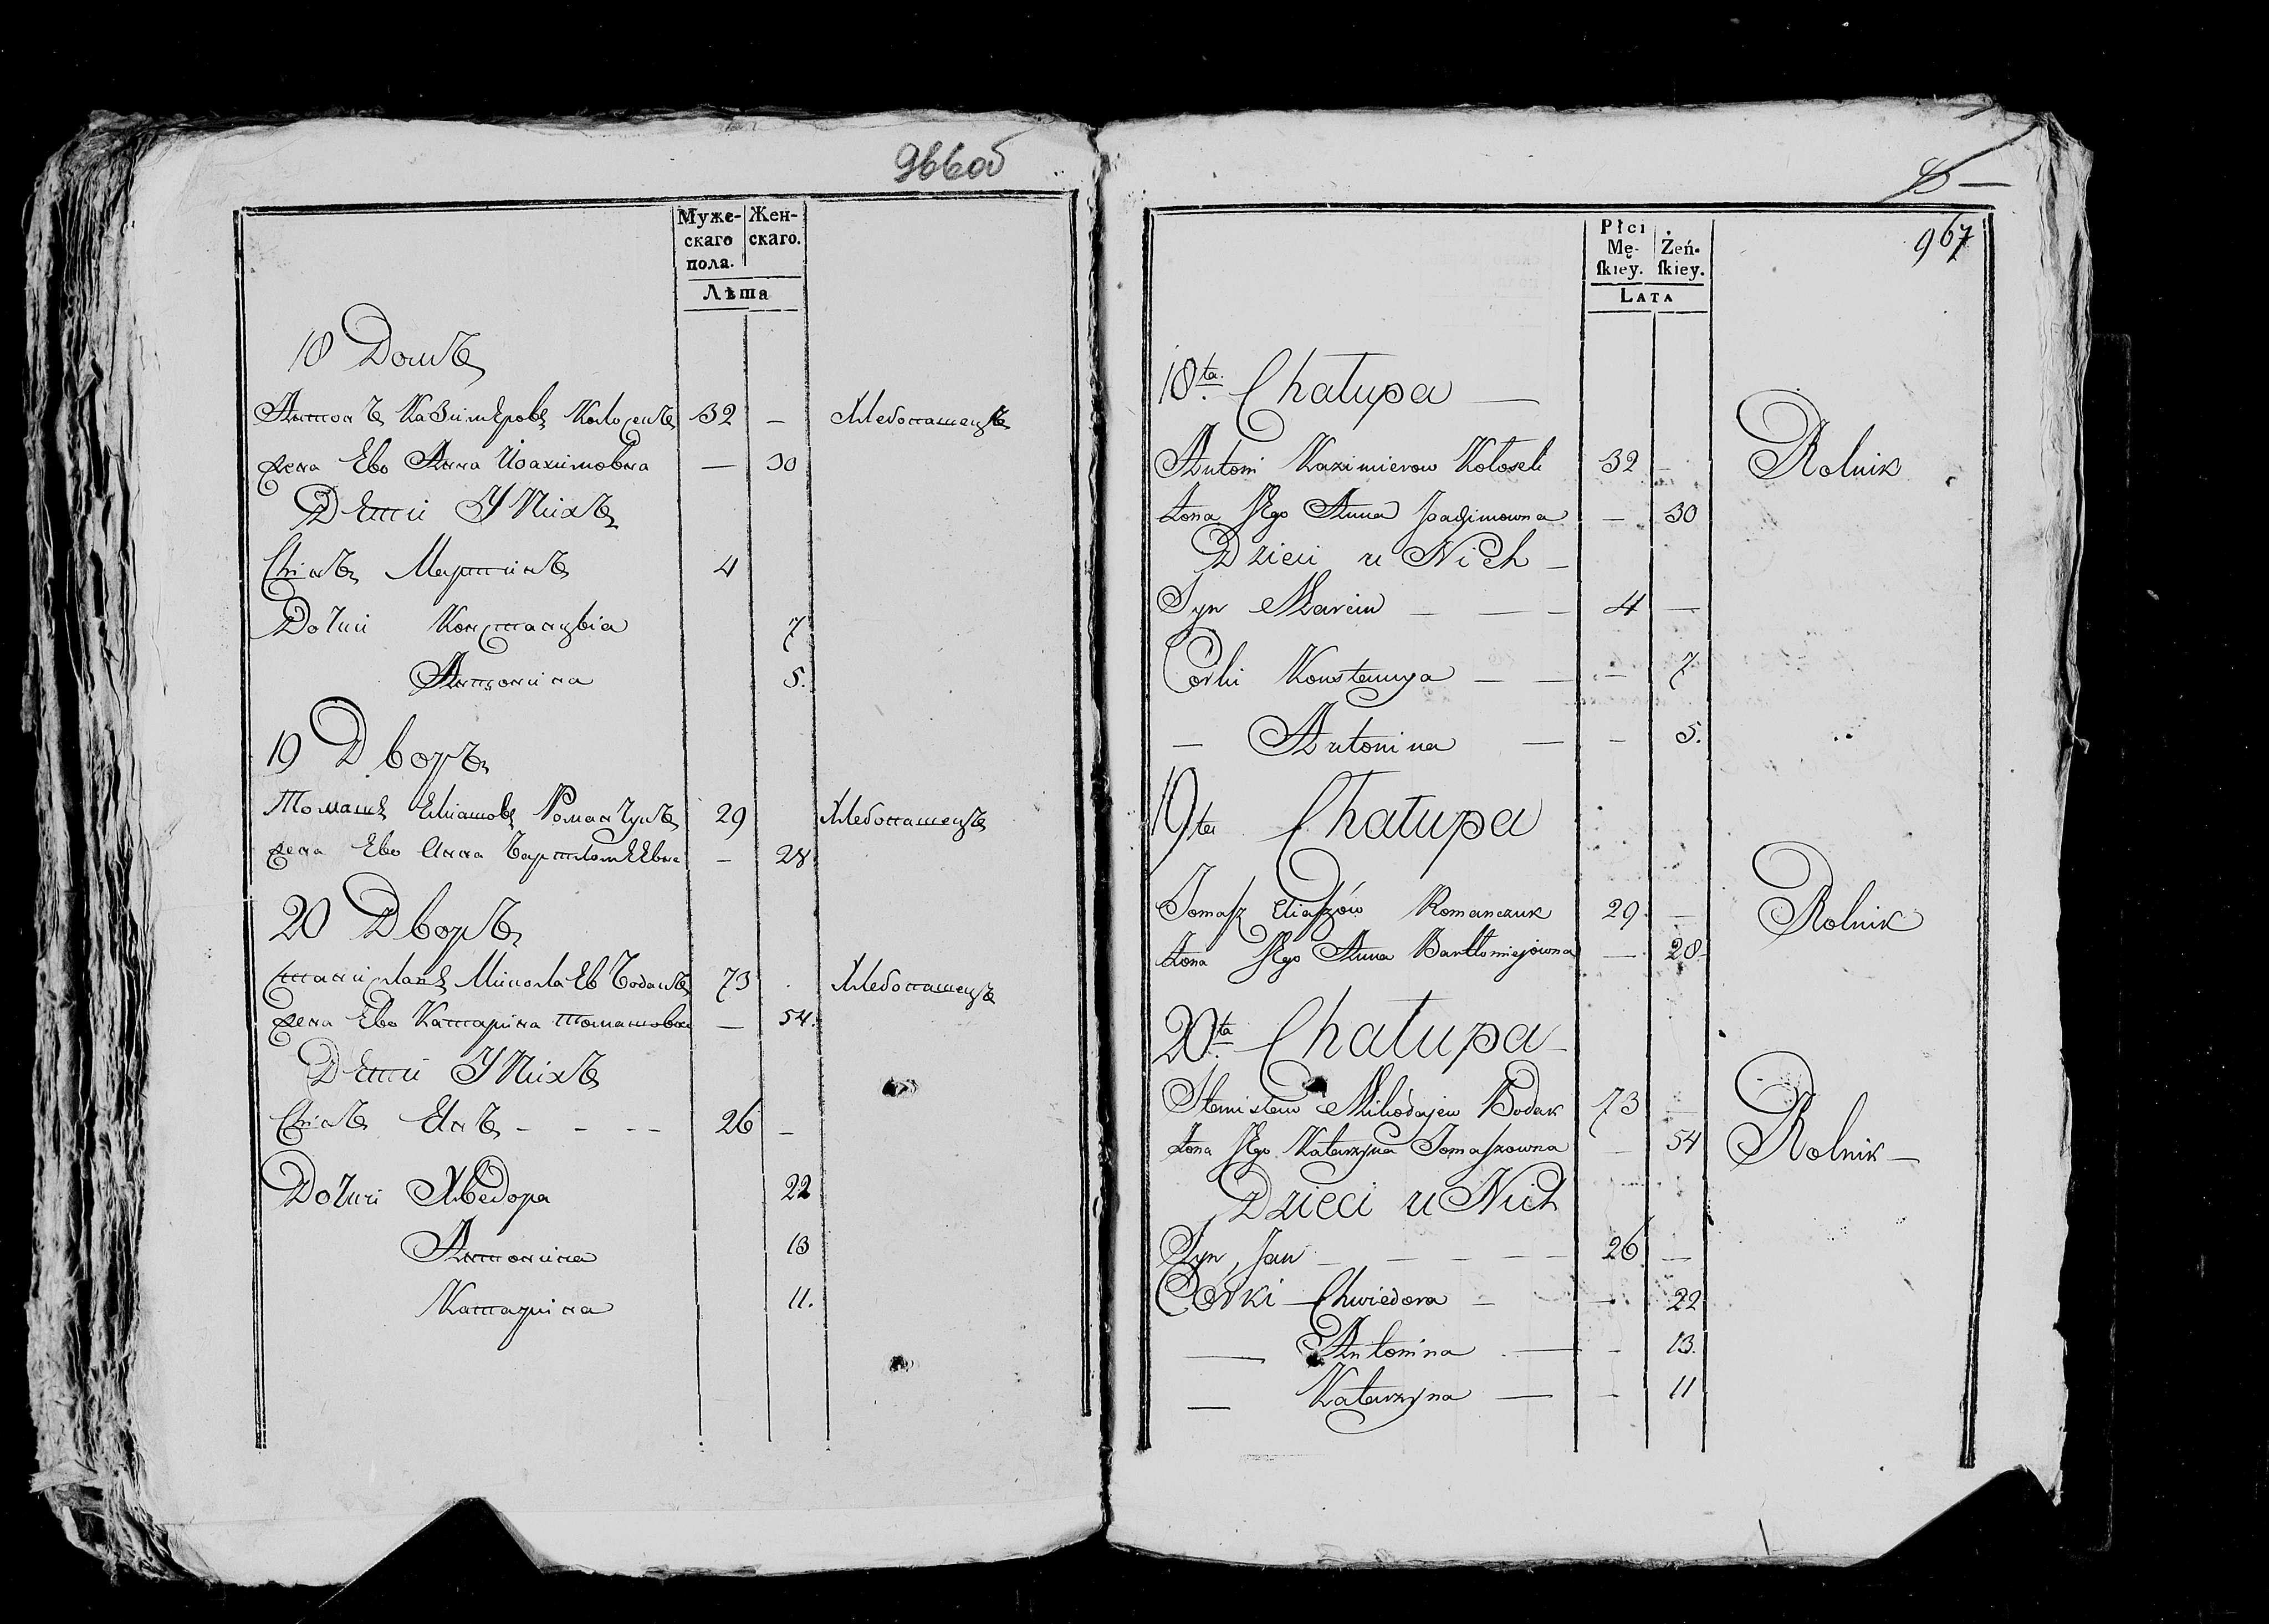 966об
Муже- Жен-
скаго скаго.
пола.
Лѣта
18 Домъ
Антонъ Казимѣровъ Колосекъ 32 — Хлебопашецъ
жена Ево Анна Иоахимовна — 30
Дѣти У Нихъ
Синъ Мартинъ 4
Дочки Констанцвіа 7
Антонина 5.
19 Дворъ
Томашъ Еліашовъ Романчукъ 29 Хлебопашецъ
жена Ево Анна Бартломѣевна — 28
20 Дворъ
Станиславъ Миколаев Бодакъ 73 Хлебопашецъ
жена Ево Катарина Томашовна — 54.
Дѣти У Нихъ
Синъ Янъ - - - - 26 —
Дочки Хведора 22
Антонина 13
Катарина 11.
8 —
967
Płci
Mę- Żeń-
ſkiey. ſkiey.
Lata
18ta Chałupa —
Antoni Kazimierow Kołosek 32 — Rolnik
Żona Jego Anna Joachimowna — 30
Dzieci u Nich —
Syn Marcin — — — 4 —
Corki Konstancya — — — 7
— Antonina — — 5.
19ta Chałupa
Tomaſz Eliaſzów Romanczuk 29 — Rolnik
Żona Jego Anna Bartłomiejówna — 28
20ta Chałupa —
Stanisław Mikołajew Bodak 73 —
Żona Jego Katarzyna Tomaſzowna — 54 Rolnik —
Dzieci u Nich
Syn, Jan — — — — — 26 —
Córki — Chwiedora — — 22
— Antonina — — 13.
— Katarzyna — — 11